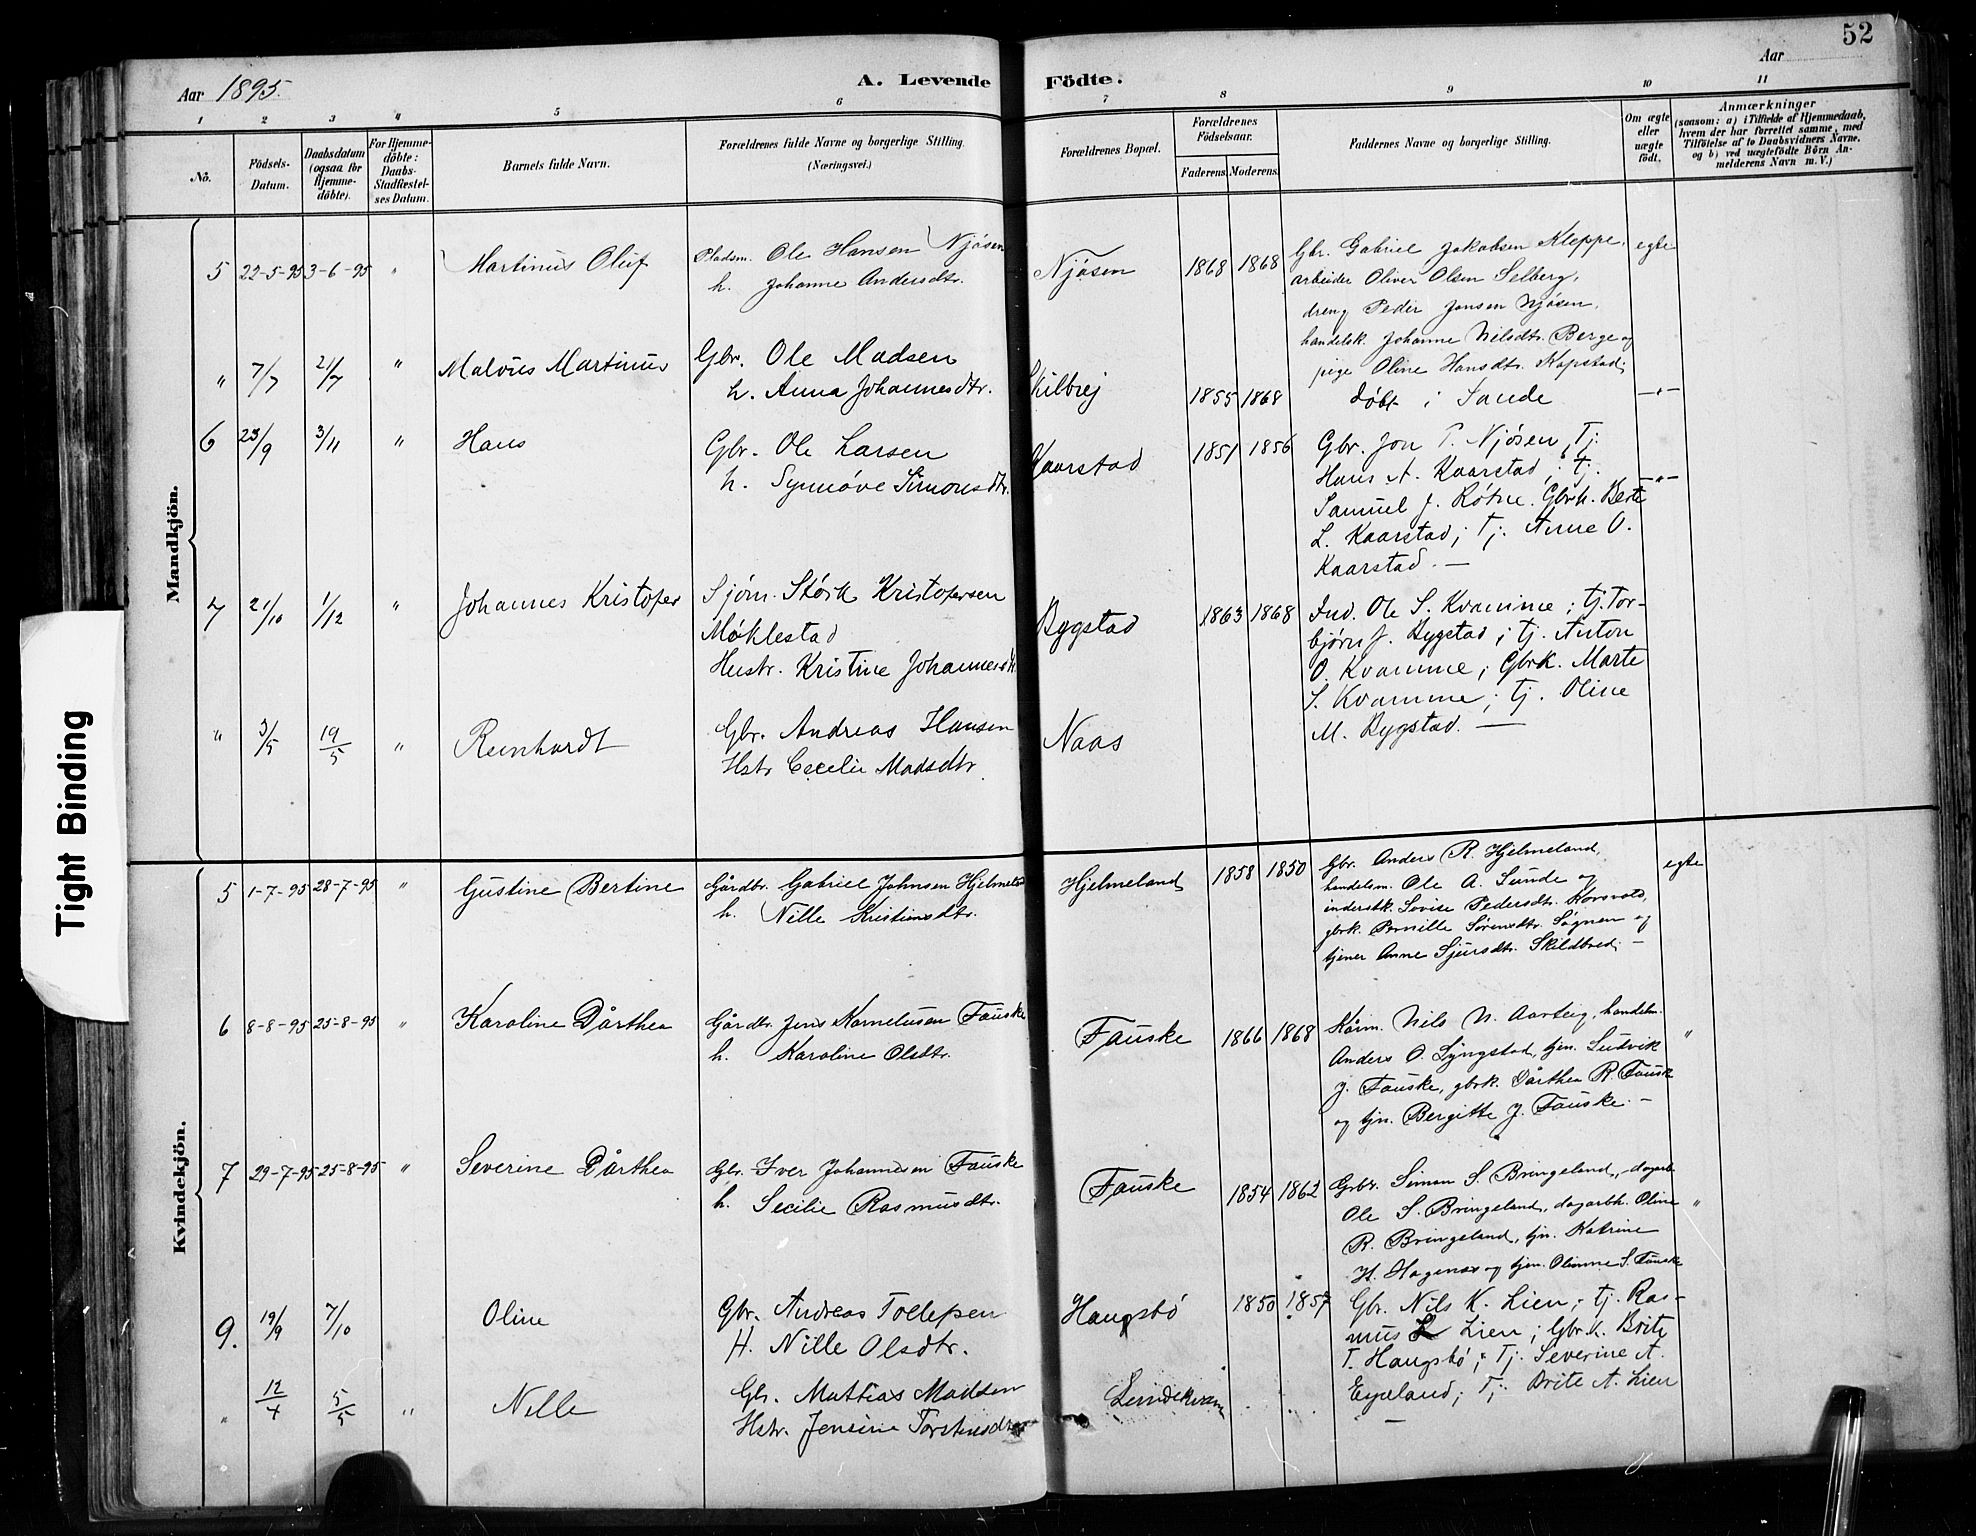 52
Aar 1895.
A. Levende Födte.
Aar
1 2 3 4 5 6 7 8 9 10 11
No.
Födsels-
Datum.
Daabsdatum
(ogsaa for
Hjemme-
döbte).
For Hjemme-
döbte:
Daabs-
Stadfæstel-
ses Datum.
Barnets fulde Navn.
Forældrenes fulde Navne og borgerlige Stilling.
(Næringsvei.)
Forældrenes Bopæl.
Forældrenes
Födselsaar.
Faderens. Moderens.
Faddernes Navne og borgerlige Stilling.
Om ægte
eller
uægte
födt.
Anmærkninger
(saasom: a) i Tilfælde af Hjemmedaab,
hvem der har forrettet samme, med
Tilföielse af to Daabsvidners Navne.
og b) ved uægtefödte Börn An-
melderens Navn m. V.)
Mandkjön.
5 22-5-95 3-6-95 " Martinus Oluf
Pladsm. Ole Hansen Njøsen
h. Johanne Andersdtr.
Njøsen 1868 1868
Gbr. Gabriel Jakobsen Kleppe, egte
arbeider Oliver Olsen Selberg,
dreng Peder Jonsen Njøsen,
handelsk. Johanne Nilsdtr. Berge og
pige Oline Hansdtr. Kapstad.
" 7/7 21/7 " Malvus Martinus
Gbr. Ole Madsen
h. Anna Johannesdtr.
Skilbrej 1855 1868 døbt i Sande —"—
6 23/9 3/11 " Hans
Gbr. Ole Larsen
h. Synnøve Simonsdtr.
Kaarstad 1851 1856
Gbr. Jon T. Njøsen, Tj.
Hans A. Kaarstad; tj. —"—
Samuel J. Røtne. Gbrk. Berte
L. Kaarstad; Tj. Anne O.
Kaarstad. —
7 21/10 1/12 " Johannes Kristofer
Sjøm. Størk Kristofersen
Møklestad
Hustr. Kristine Johannesdtr.
Bygstad 1863 1868
Ind. Ole S. Kvamme; tj. Tor-
bjørn J. Bygstad; tj. Anton
O. Kvamme; Gbrk. Marte
S. Kvamme; tj. Oline
M. Bygstad. —
" 3/5 19/5 " Reinhardt
Gbr. Andreas Hansen
Hstr Cecelie Madsdtr.
Naas
Kvindekjön.
5 1-7-95 28-7-95 " Gustine Bertine
Gårdbr. Gabriel Johnsen Hjelmeland
h. Nille Kristiansdtr.
Hjelmeland 1858 1850
Gbr. Anders R. Hjelmeland, egte
handelsm. Ole A. Sunde og
inderstk. Lovise Pedersdtr. Korsvold,
gbrk. Pernille Sørensdtr. Søgnen og
tjener Anne Sjursdtr. Skildbred. —
6 8-8-95 25-8-95 " Karoline Dårthea
Gårdbr. Jens Kornelusen Fauske
h. Karoline Olsdtr.
Fauske 1866 1868
Kårm. Nils N. Aarteig, handelm.
Anders O. Syngstad, tjn. Ludvik "
J. Fauske, gbrk. Dårthea R. Fauske
og tjn. Bergitte J. Fauske. —
7 29-7-95 25-8-95 " Severine Dårthea
Gbr. Iver Johannesen Fauske
h. Secilie Rasmusdtr.
Fauske 1854 1862
Grbr. Simon S. Bringeland, dagarb.
Ole S. Bringeland, dagarbk. Oline "
R. Bringeland, tjn. Katrine
H. Hagenæs og tjen. Olianne S. Fauske
9. 19/9 7/10 Oline
Gbr. Andreas Tollefsen
H. Nille Olsdtr.
Haugsbø 1850 1857
Gbr. Nils K. Lien; tj. Ras-
mus L Lien; Gbrk. Brite
T. Haugsbø; Tj. Severine A.
Espeland; Tj. Brite A. Lien
—
" 12/4 5/5 " Nille
Gbr. Mattias Madsen
Hstr. Jensine Torstensdtr.
Lindekvam
Tight Binding